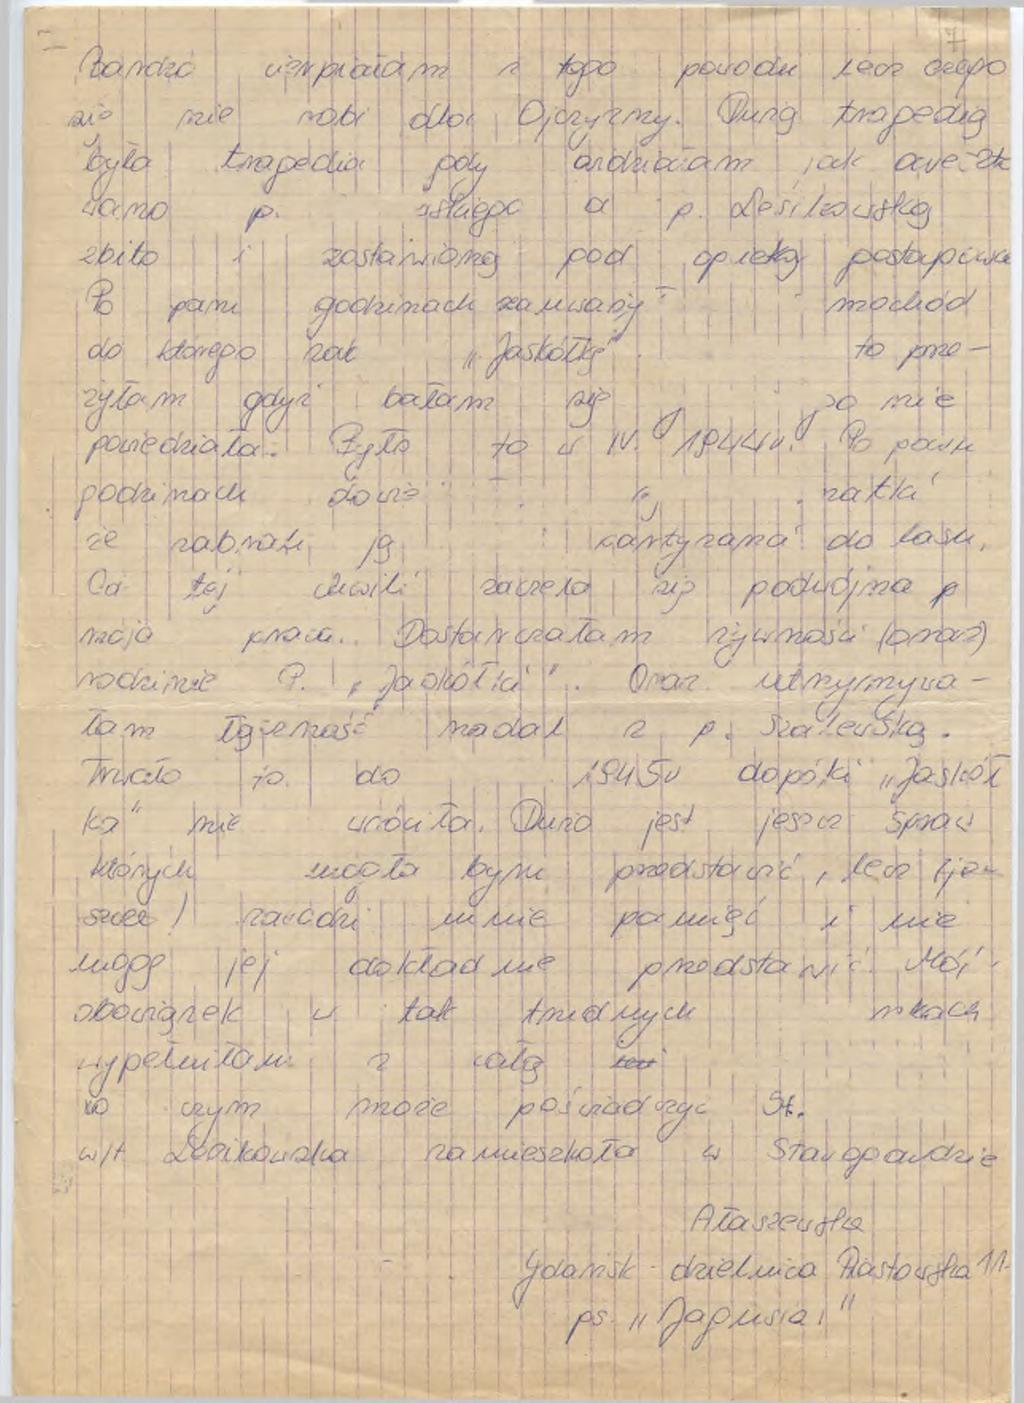 7
Bardzo cierpiałam z tego powodu lecz czego
się nie robi dla Ojczyzny. Dużą tragedią
była tragedia gdy widziałam jak
wano p. a p. Lesikowską
zbito i zostawioną pod opieką
Po paru godzinach mochód
do którego "Jaskółkę" to prze-
żyłam gdyż bałam się nie
powiedziała. Było to w IV. 1944r. Po paru
godzinach
że zabrali ją do lasu.
Od tej chwili zaczęła się podwójna p
moja praca. Dostarczałam żywności (oraz)
rodzinie P. "Jaskółki". Oraz utrzymywa-
łam łączność nadal z p. Szalewską.
Trwało to do 1945r dopóki "Jaskół
ka" nie wróciła. Dużo jest jeszcz spraw
których mogła bym przedstawić, lecz
zawodzi mnie pamięć i nie
mogę jej dokładnie przedstawić. Mój
obowiązek w tak trudnych
wypełniłam z całą
co czym może poświadczyć St.
Lesikowska zamieszkała w Starogardzie
Ałaszewska
Gdańsk - dzielnica Piastowska 11
ps. "Jagusia"